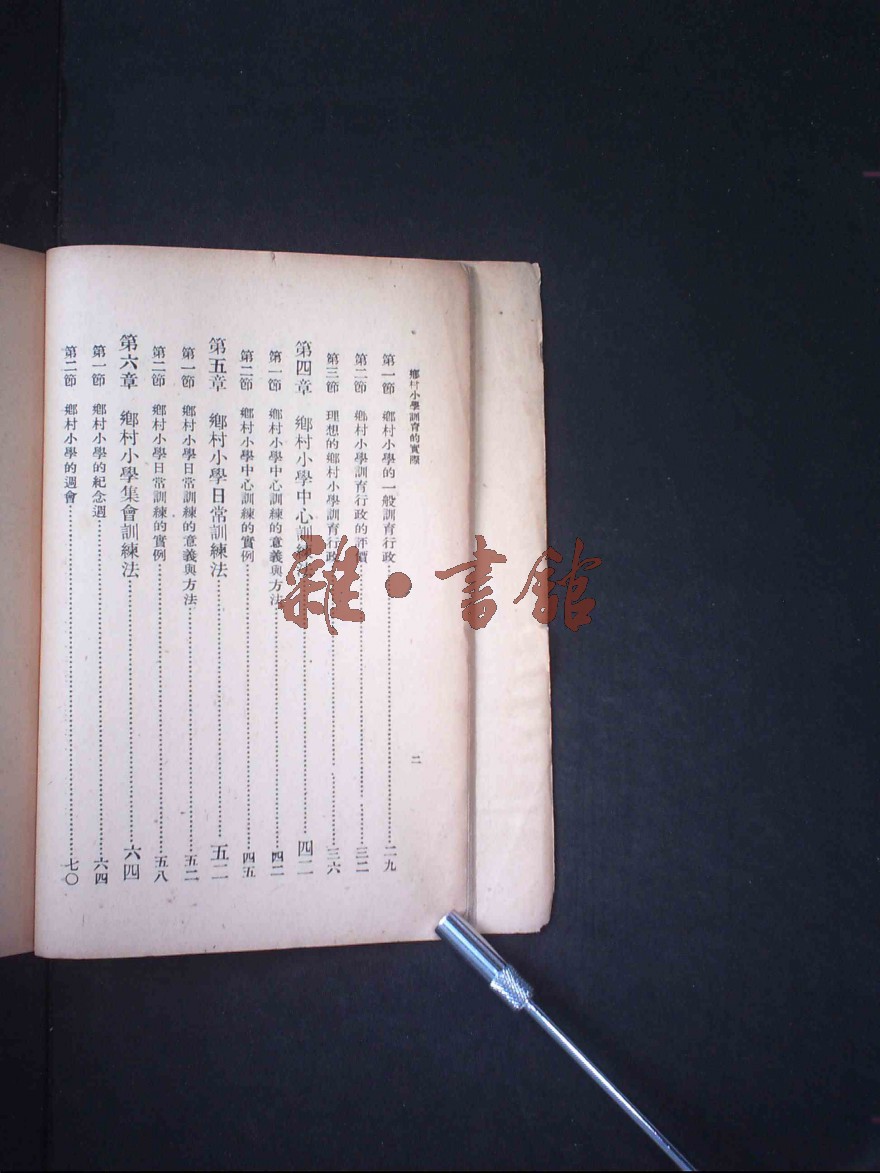 鄉村小學訓育的實際
二
第一節 鄉村小學的一般訓育行政……二九
第二節 鄉村小學訓育行政的評價……三二
第三節 理想的鄉村小學訓育行政……三六
第四章 鄉村小學中心訓練法……四二
第一節 鄉村小學中心訓練的意義與方法……四二
第二節 鄉村小學中心訓練的實例……四五
第五章 鄉村小學日常訓練法……五二
第一節 鄉村小學日常訓練的意義與方法……五二
第二節 鄉村小學日常訓練的實例……五八
第六章 鄉村小學集會訓練法……六四
第一節 鄉村小學的紀念週……六四
第二節 鄉村小學的週會……七〇
雜·書館